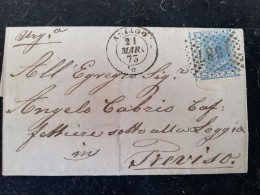 Urg.a
ASIAGO
21
MAR.
75
All'Egregio Sig.
Angelo Cabrio Caf-
fettiere sotto alla Loggia
in
Treviso.